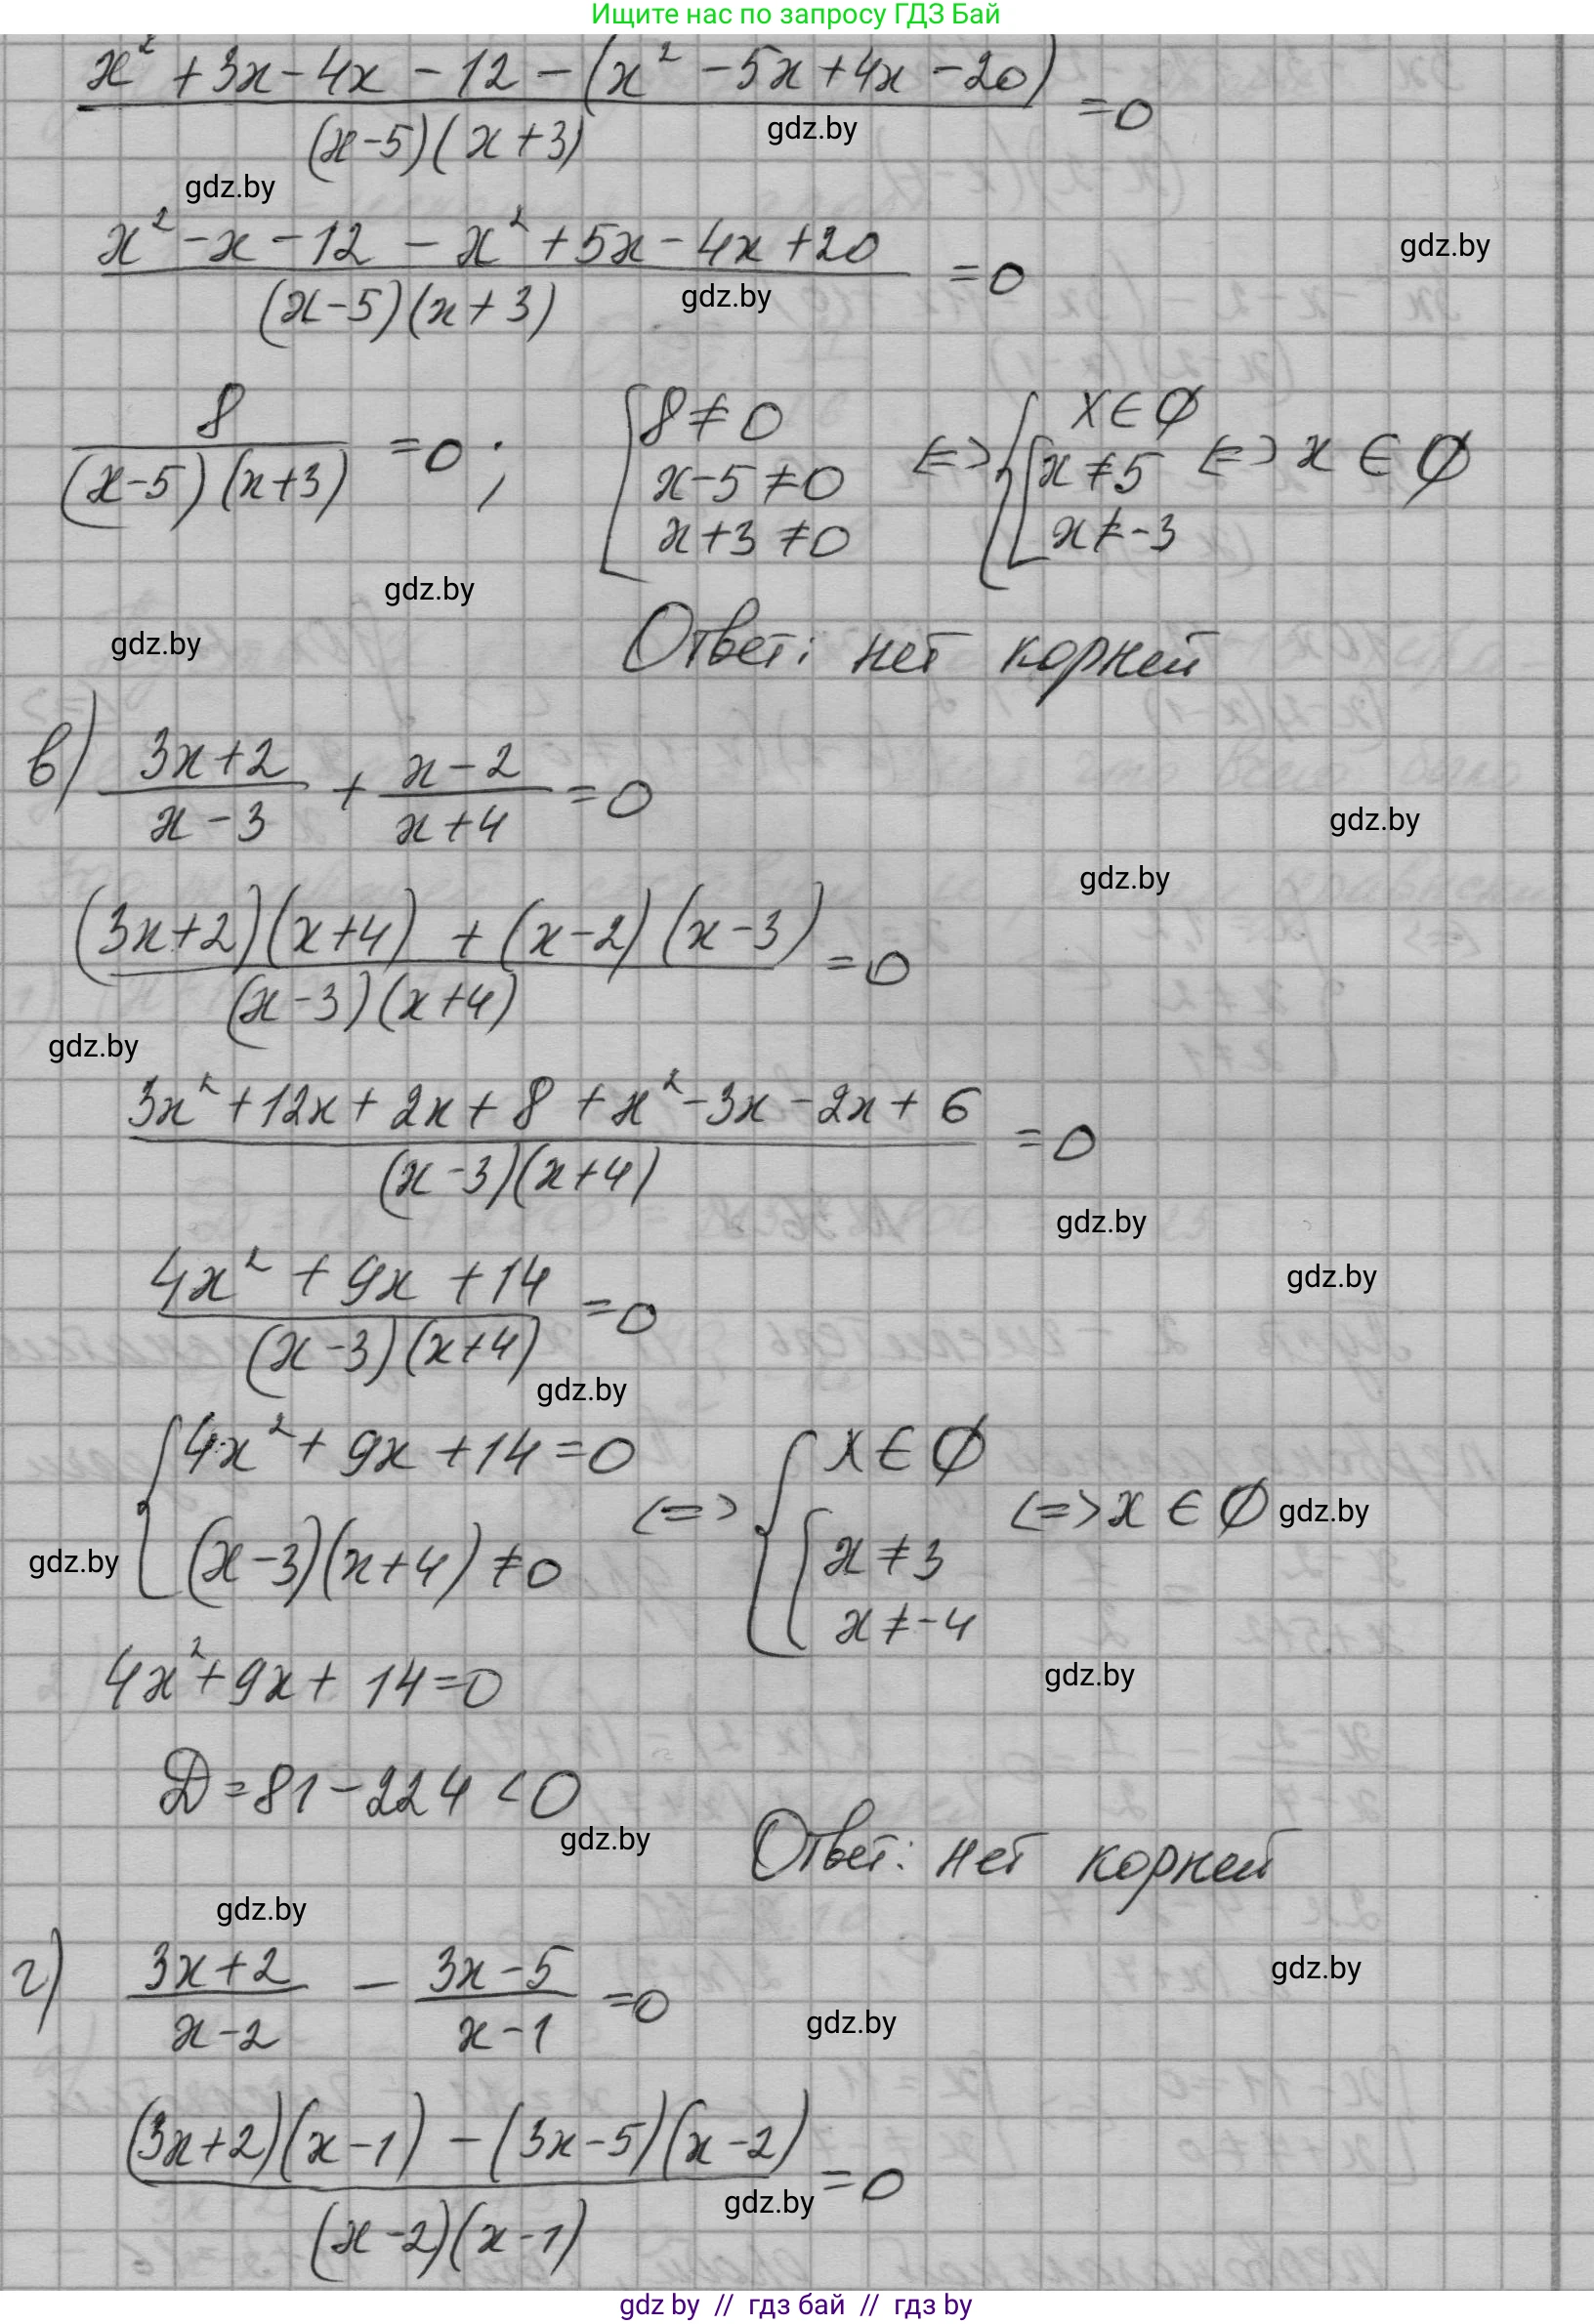 Ищите нас по запросу ГДЗ Бай
x² + 3x - 4x - 12 - (x² - 5x + 4x - 20) / (x-5)(x+3) = 0
gdz.by
gdz.by
x² - x - 12 - x² + 5x - 4x + 20 / (x-5)(x+3) = 0
gdz.by
gdz.by
8 / (x-5)(x+3) = 0; [ 8 ≠ 0 x-5 ≠ 0 x+3 ≠ 0 <=> { x ∈ ∅ [ x ≠ 5 x ≠ -3 <=> x ∈ ∅
gdz.by
gdz.by
Ответ: нет корней
в) 3x+2 / x-3 + x-2 / x+4 = 0
gdz.by
gdz.by
(3x+2)(x+4) + (x-2)(x-3) / (x-3)(x+4) = 0
gdz.by
3x² + 12x + 2x + 8 + x² - 3x - 2x + 6 / (x-3)(x+4) = 0
gdz.by
gdz.by
4x² + 9x + 14 / (x-3)(x+4) = 0
gdz.by
{ 4x² + 9x + 14 = 0 (x-3)(x+4) ≠ 0 <=> { x ∈ ∅ { x ≠ 3 x ≠ -4 <=> x ∈ ∅
gdz.by
gdz.by
4x² + 9x + 14 = 0
gdz.by
D = 81 - 224 < 0
gdz.by
Ответ: нет корней
gdz.by
г) 3x+2 / x-2 - 3x-5 / x-1 = 0
gdz.by
gdz.by
(3x+2)(x-1) - (3x-5)(x-2) / (x-2)(x-1) = 0
gdz.by
gdz by // гдз бай // гдз by